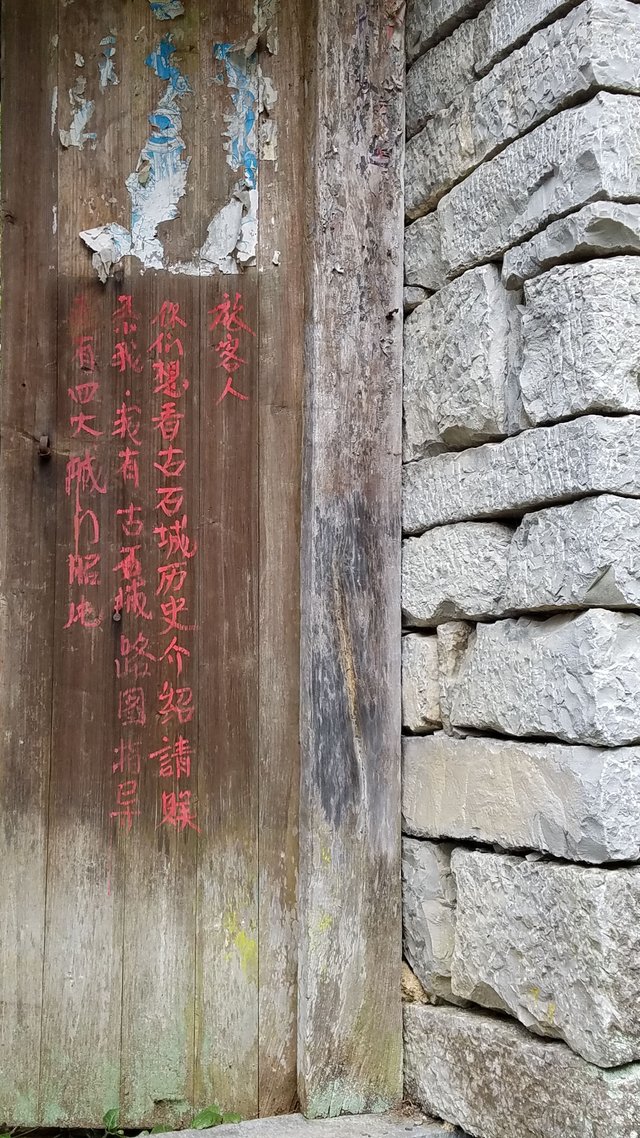 旅客人
你们想看古石城历史介绍請联
系我.我有古石城路图指导
有四大城门照